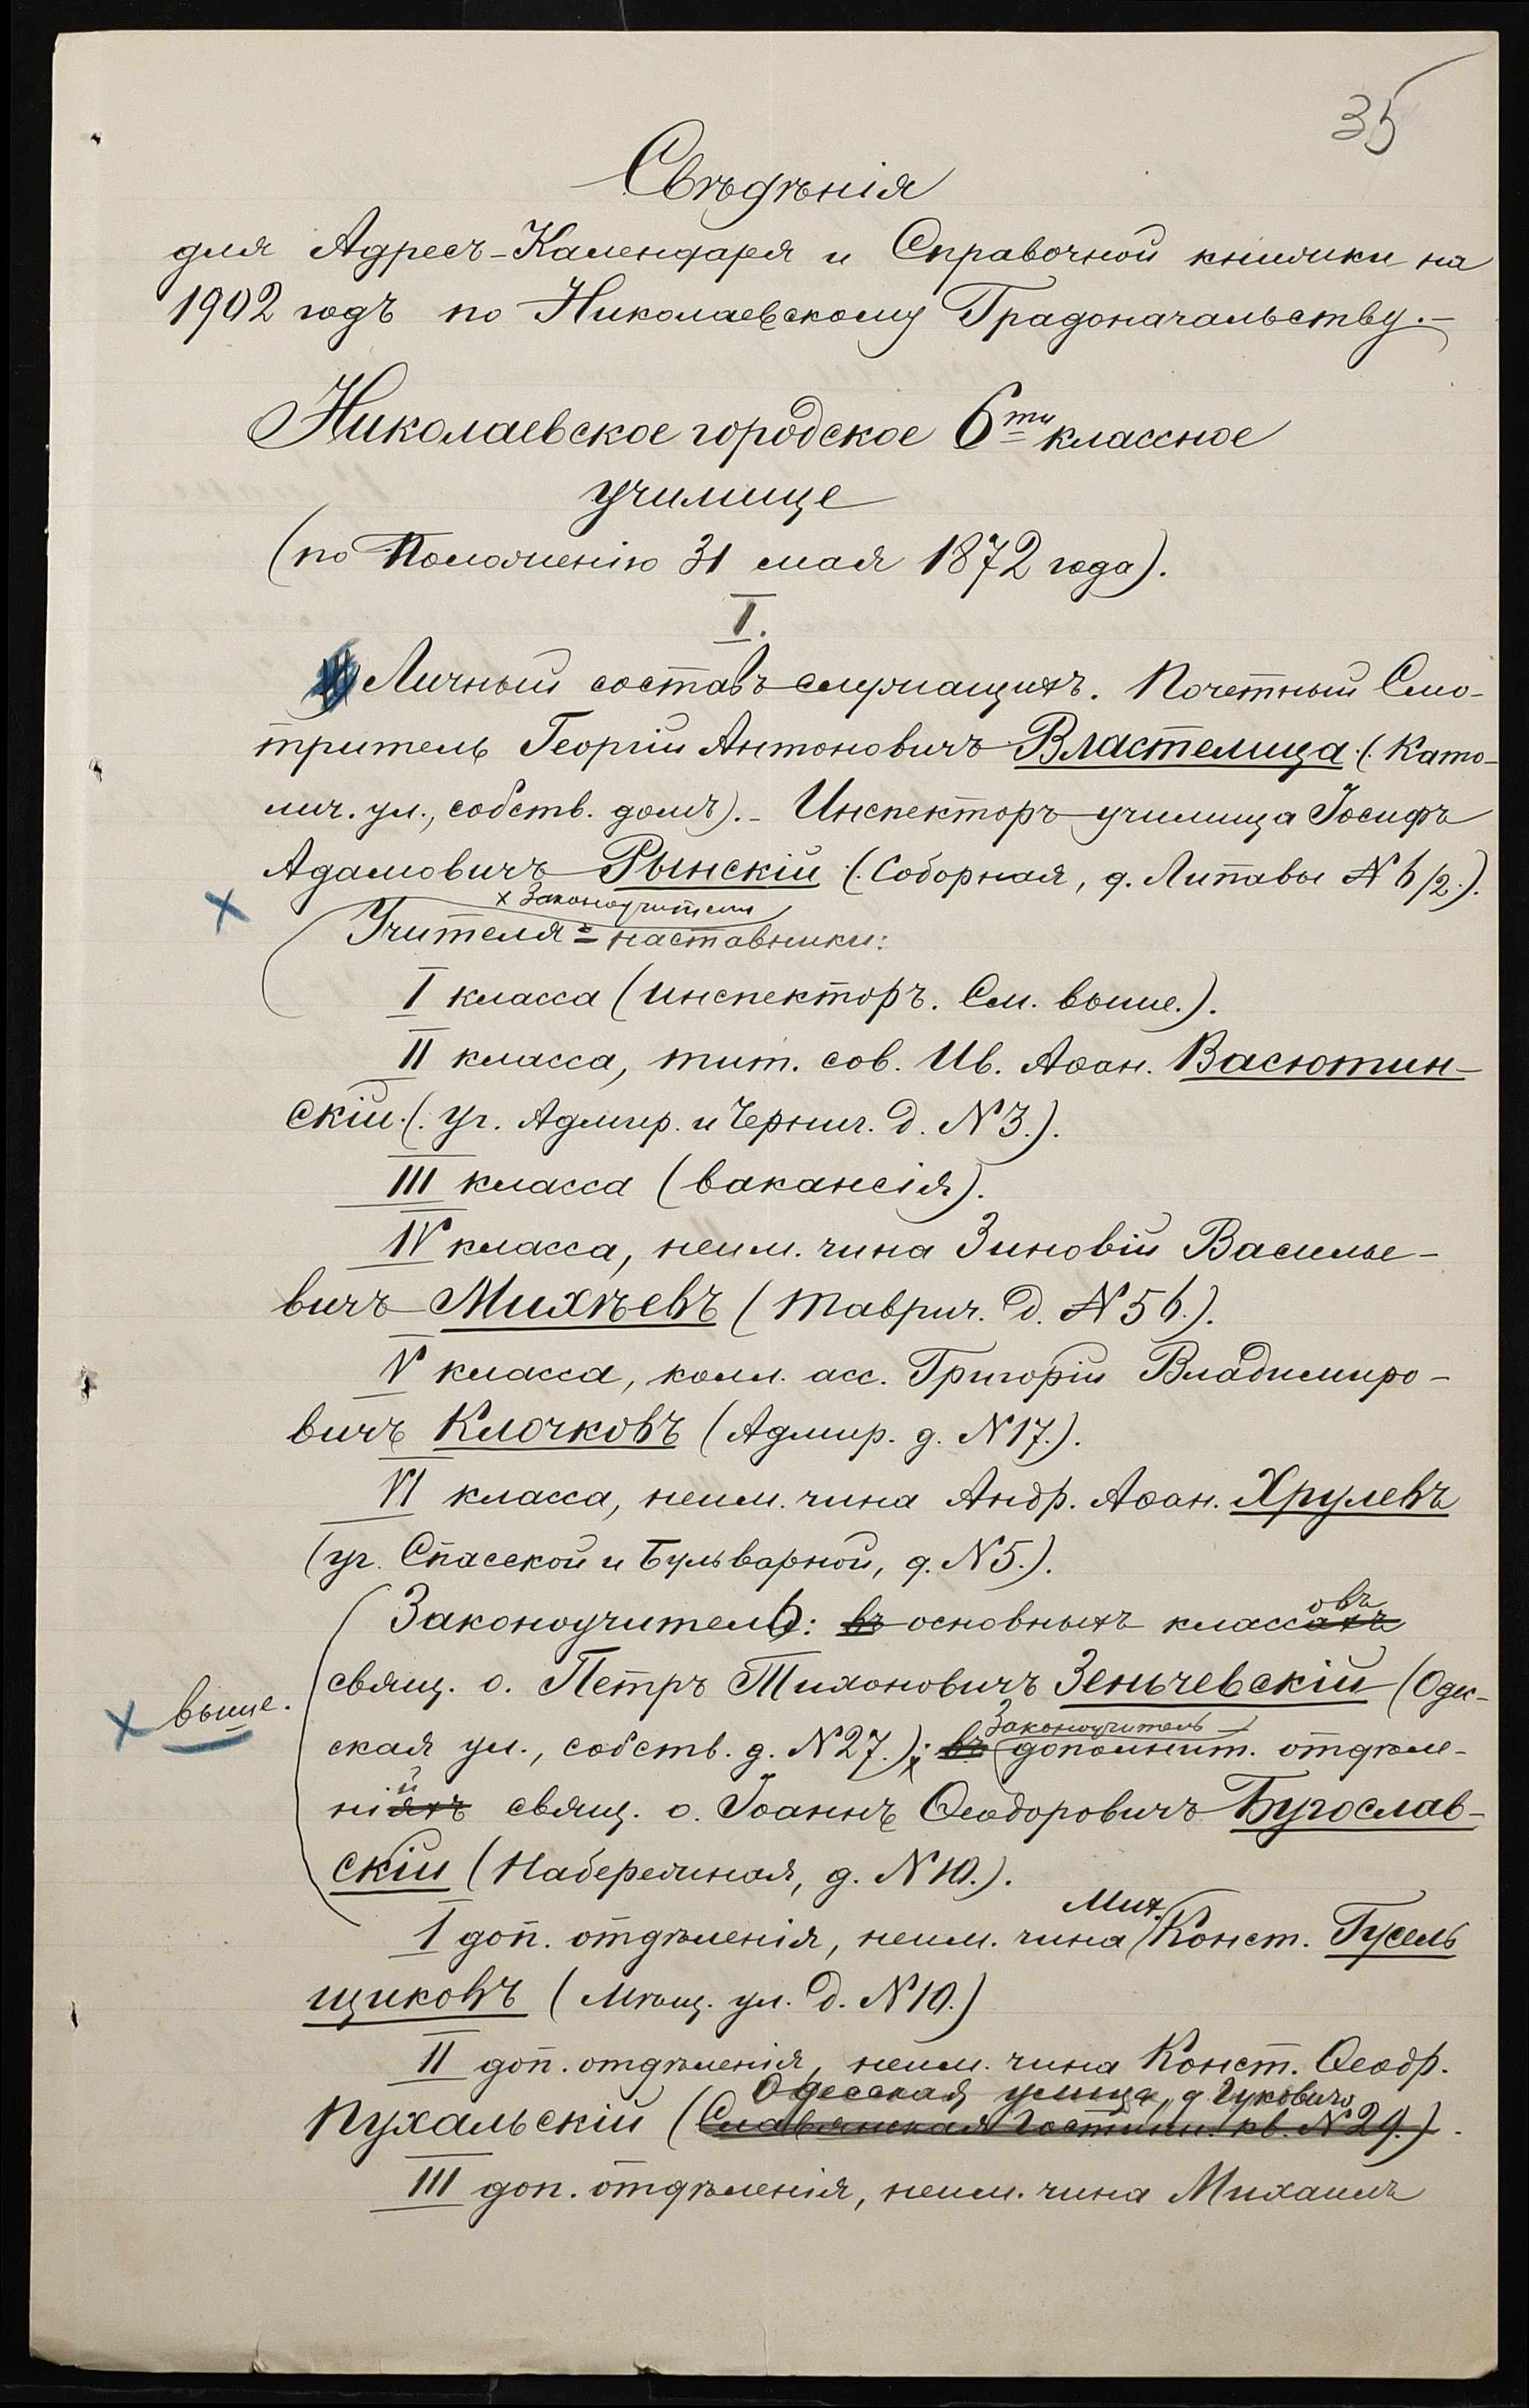 35
Свѣдѣнія
для Адресъ-Календаря и Справочной книжки на
1902 годъ по Николаевскому Градоначальству.-
Николаевское городское 6ти классное
училище
(по Положенію 31 мая 1872 года).
I.
Личный составъ служащихъ. Почетный Смо-
тритель Георгій Антоновичъ Властелица (Като-
лич. ул., собств. домъ).- Инспекторъ училища Іосифъ
Адамовичъ Рынскій (Соборная, д. Липавы № 6/2.).
х Законоучители
Учителя = наставники:
I класса (инспекторъ. См. выше.).
II класса, тит. сов. Ив. Аѳан. Васютин-
скій (уг. Адмир. и Черниг. д. № 3.).
III класса (вакансія).
IV класса, неим. чина Зиновій Василье-
вичъ Михѣевъ (Таврич. д. № 56.).
V класса, колл. асс. Григорій Владиміро-
вичъ Клочковъ (Адмир. д. № 17.).
VI класса, неим. чина Андр. Аѳан. Хрулевъ
(уг. Спасской и Бульварной, д. № 5.).
овъ
Законоучитель: въ основныхъ классахъ
свящ. о. Петръ Тихоновичъ Зеньчевскій (Одес-
х выше.
Законоучитель
ская ул., собств. д. № 27.); въ дополнит. отдѣле-
й
ніяхъ свящ. о. Іоаннъ Ѳеодоровичъ Бугослав-
скій (Набережная, д. № 10.).
Мих.
I доп. отдѣленія, неим. чина Конст. Гусель
щиковъ (Мѣщ. ул. д. № 10.)
II доп. отдѣленія, неим. чина Конст. Ѳеодр.
Одесская улица, д. Гуковича
Пухальскій (Славянская Гостинн. кв. № 29.).
III доп. отдѣленія, неим. чина Михаилъ